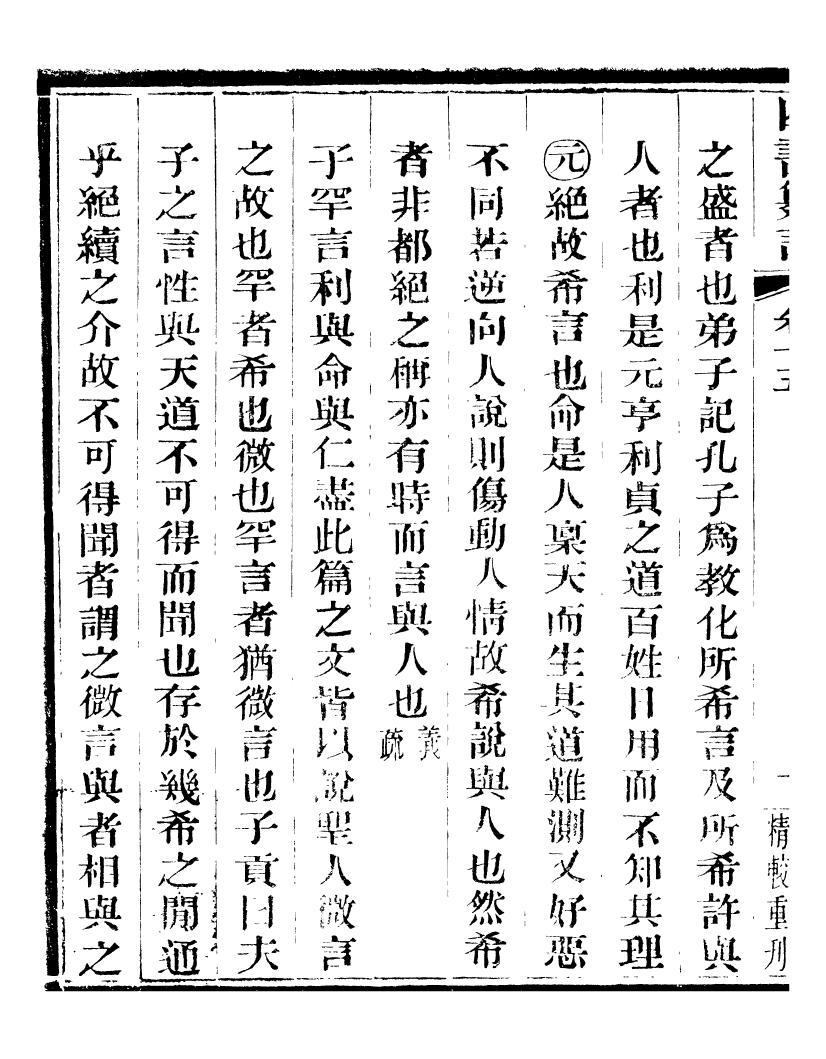 卷十五
一
精較重刊
之盛者也弟子記孔子爲教化所希言及所希許與
人者也利是元亨利貞之道百姓日用而不知其理
元絕故希言也命是人稟天而生其道難測又好惡
不同若逆向人說則傷動人情故希說與人也然希
者非都絕之稱亦有時而言與人也義疏
子罕言利與命與仁盡此篇之文皆以說聖人微言
之故也罕者希也微也罕言者猶微言也子貢曰夫
子之言性與天道不可得而聞也存於幾希之閒通
乎絕續之介故不可得聞者謂之微言與者相與之